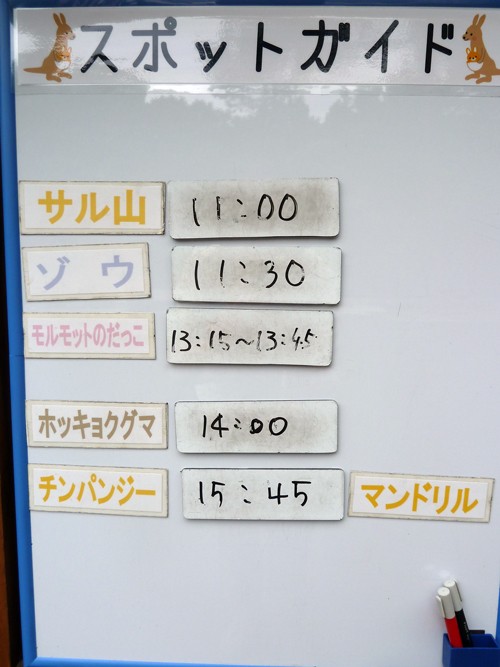 スポットガイド
サル山 11:00
ゾウ 11:30
モルモットのだっこ 13:15~13:45
ホッキョクグマ 14:00
チンパンジー 15:45 マンドリル